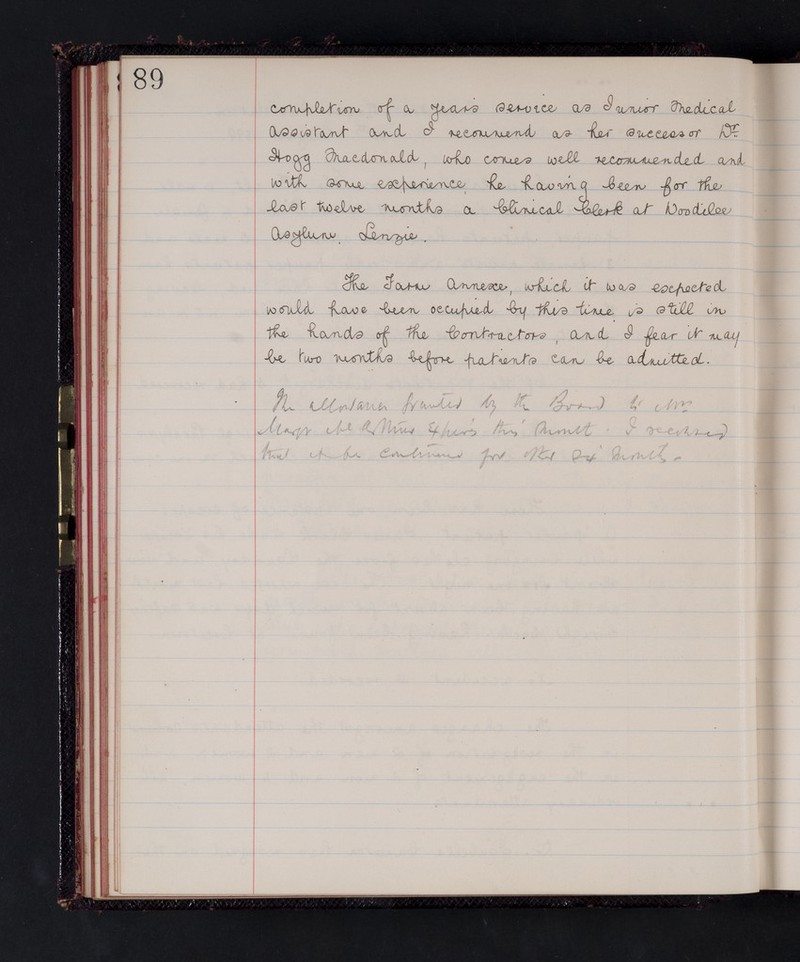 89
completion of a years service as Junior Medical
Assistant and I recommend as her successor Dr
Hogg Macdonald, who comes well recommended and
with some experience, he having been for the
last twelve months a Clinical Clerk at Woodilee
Asylum, Lenzie.
The Farm Annexe, which it was expected
would have been occupied by this time, is still in
the hands of the Contractors, and I fear it may
be two months before patients can be admitted.
The allowance granted by the Board to Mrs
expires this month. I recommend
that it be continued for other six months.